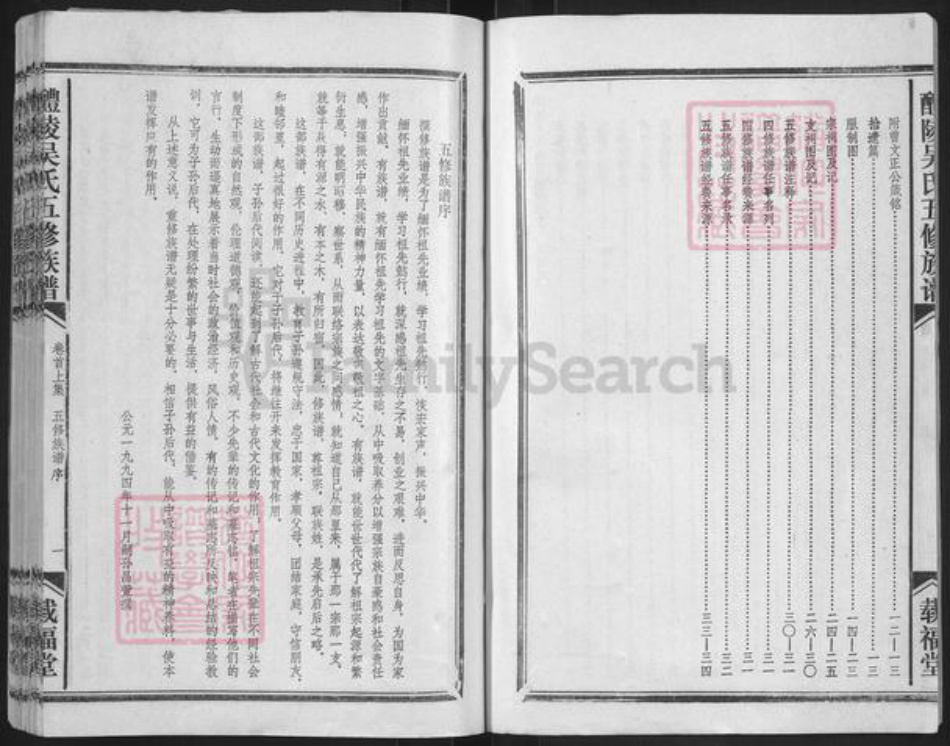 醴陵吴氏五修族谱
载福堂
附曾文正公箴铭 一二—一三
拾遗篇 一三
服制图 一四—二三
宗祠图及记 二四—二五
支祠图及记 二六—三〇
五修族谱注释 三〇—三一
四修族谱任事名列 三一
四修族谱经费来源 三一
五修族谱任事名录 三二
五修族谱经费来源 三三—三四
五修族谱序
撰修族谱是为了缅怀祖先业绩，学习祖先懿行，恢宏家声，振兴中华。
缅怀祖先业绩，学习祖先懿行，就深感祖先生存之不易，创业之艰难，进而反思自身，为国为家
作出贡献，有族谱，就有缅怀祖先学习祖先的文字基础，从中吸取养分以增强宗族自豪感和社会责任
感，增强振兴中华民族的精神力量，以表达敬宗敬祖之心。有族谱，就能世世代代了解祖宗起源和繁
衍生息，就能明昭穆，察世系，从而联络宗族之间感情，就知道自己从那里来，属于那一宗那一支，
就等于从得有源之水，有本之木，有所归宿。因此，修族谱，尊祖宗，联族姓，是承先启后之略。
这部族谱，在不同历史进程中，教育子孙遵规守法，忠于国家，孝顺父母，团结家庭，守信朋友，
和睦邻里，起过很好的作用。它对于子孙后代，将继往开来发挥教育作用。
这部族谱，子孙后代阅读，还能起到了解古代社会和古代文化的作用，了解祖宗先辈在不同社会
制度下形成的自然观、伦理道德观、价值观和历史观，不少先辈的传记和墓志铭，笔者在描写他们的
言行，生动而逼真地展示着当时社会的政治经济、风俗人情。有的传记和墓志所反映和总结的经验教
训，它可为子孙后代，在处理纷繁的世事与生活，提供有益的借鉴。
从上述意义说，重修族谱无疑是十分必要的。相信子孙后代，能从中吸取有益的精神养料，使本
谱发挥应有的作用。
公元一九九四年十一月嗣孙昌
醴陵吴氏五修族谱
卷首上集 五修族谱序
一
载福堂
FamilySearch